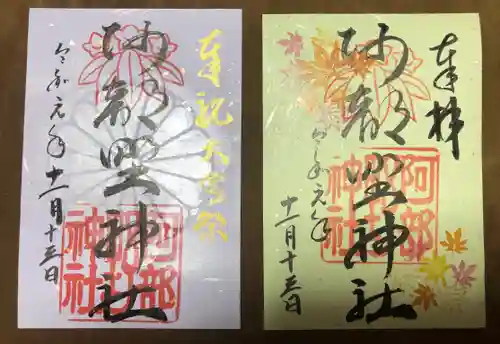 奉祝大嘗祭
阿部野神社
令和元年
十一月十五日
阿部
神社
奉拝
阿部野神社
令和元年
十一月十五日
阿部
神社